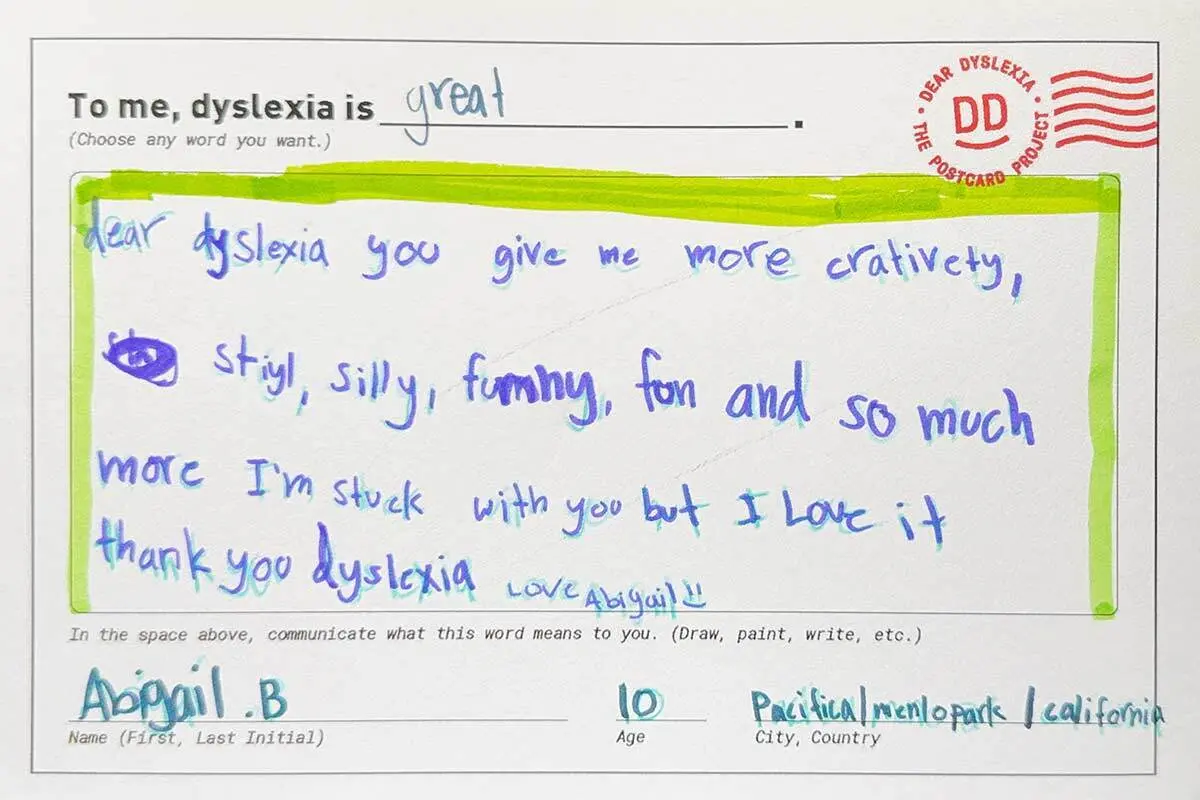 To me, dyslexia is great.
(Choose any word you want.)
DEAR DYSLEXIA • THE POSTCARD PROJECT •
DD
dear dyslexia you give me more crativety,
stiyl, silly, fumhy, fon and so much
more I'm stuck with you but I Love it
thank you dyslexia Love Abigail
In the space above, communicate what this word means to you. (Draw, paint, write, etc.)
Abigail .B 10 Pacifica/menlopark/california
Name (First, Last Initial) Age City, Country